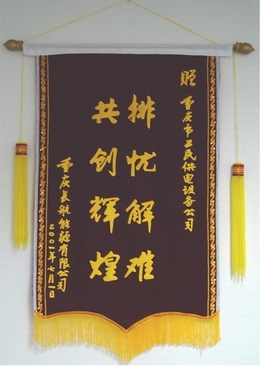 赠
重庆市卫民供电设备公司
排忧解难
共创辉煌
重庆长航能源有限公司
二00二年七月一日